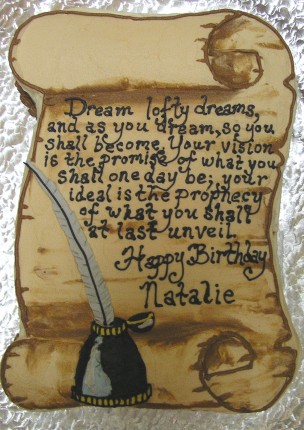 Dream lofty dreams,
and as you dream, so you
shall become. Your vision
is the promise of what you
shall one day be; your
ideal is the prophecy
of what you shall
at last unveil.
Happy Birthday
Natalie